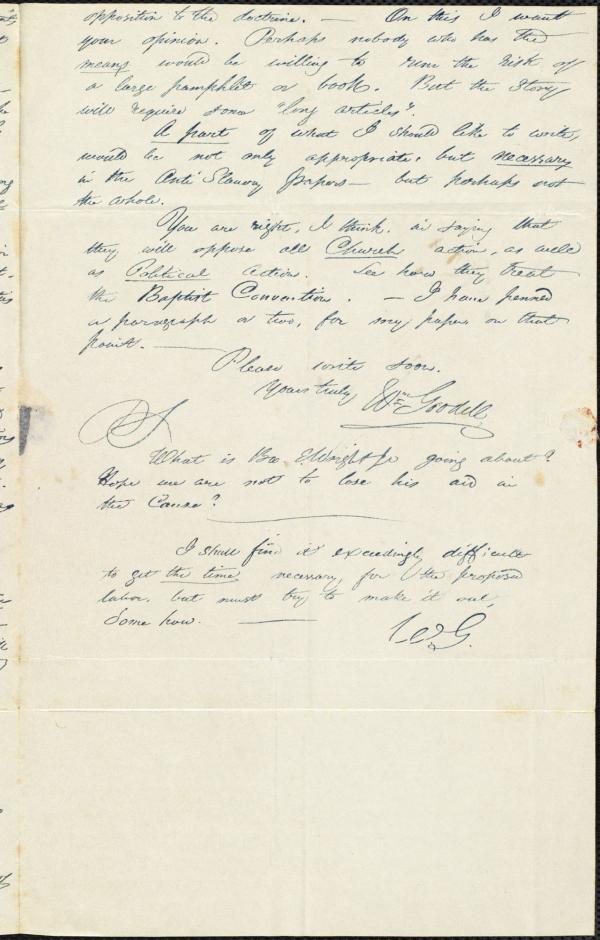 opposition to the doctrine. — On this I want
your opinion. Perhaps nobody who has the
means would be willing to run the risk of
a large pamphlet or book. But the Story
will require some "long articles".
A part of what I should like to write,
would be not only appropriate, but necessary
in the Anti Slavery papers — but perhaps not
the whole.
You are right, I think, in saying that
they will oppose all Church action, as well
as Political action. See how they treat
the Baptist Convention. — I have penned
a paragraph or two, for my paper on that
point. —
Please write soon.
Yours truly Wm Goodell
PS
What is Bro. E. Wright Jr going about?
Hope we are not to lose his aid in
the Cause?
I shall find it exceedingly difficult
to get the time necessary for the proposed
labor, but must try to make it out,
Some how. —
W. G.